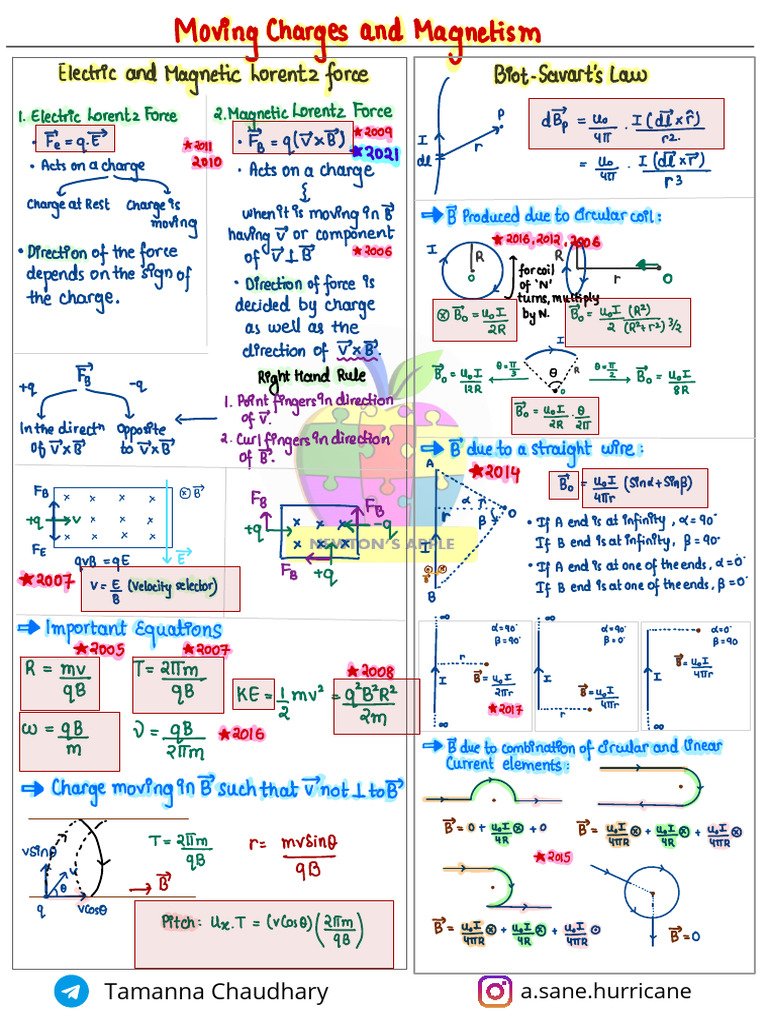 Moving Charges and Magnetism
Electric and Magnetic Lorentz force
1. Electric Lorentz Force
• F⃗e = q.E⃗
★2011
2010
• Acts on a charge
Charge at Rest
Charge is moving
• Direction of the force
depends on the sign of
the charge.
2. Magnetic Lorentz Force
• F⃗B = q(V⃗×B⃗)
★2009
★2021
• Acts on a charge
when it is moving in B⃗
having v⃗ or component
of v⃗ ⊥ B⃗
★2006
• Direction of force is
decided by charge
as well as the
direction of V⃗×B⃗.
Right Hand Rule
1. Point fingers in direction
of V⃗.
2. Curl fingers in direction
of B⃗.
F⃗B
+q
-q
In the directn
of V⃗×B⃗
Opposite
to V⃗×B⃗
FB
+q
v
FE
× × × ×
× × × ×
⊗B⃗
E⃗
qvB = qE
★2007
V = E/B (Velocity selector)
FB
+q
× × ×
× × ×
FB
-q
FB
+q
NEWTON'S APPLE
⇒ Important Equations
★2005
★2007
R = mv/qB
T = 2πm/qB
★2008
KE = 1/2 mv² = q²B²R²/2m
ω = qB/m
ν = qB/2πm
★2016
⇒ Charge moving in B⃗ such that V⃗ not ⊥ to B⃗
vsinθ
v
θ
q
vcosθ
B⃗
T = 2πm/qB
r = mvsinθ/qB
Pitch: Ux.T = (vcosθ)(2πm/qB)
Biot-Savart's Law
I
dl
r
P
dB⃗p = u₀/4π . I(dl⃗×r̂)/r²
= u₀/4π . I(dl⃗×r⃗)/r³
⇒ B⃗ Produced due to circular coil:
★2016, 2012, 2006
I
R
O
for coil
of 'N'
turns, multiply
by N.
R
r
O
⊗ B⃗o = u₀I/2R
B⃗o = u₀I/2 (R²)/(R²+r²)^3/2
I
R
θ
O
B⃗o = u₀I/12R
θ=π/3
θ=π/2
B⃗o = u₀I/8R
B⃗o = u₀I/2R . θ/2π
⇒ B⃗ due to a straight wire:
A
★2014
B⃗o = u₀I/4πr (Sinα+Sinβ)
α
r
β
O
I
B
• If A end is at infinity, α=90°
If B end is at infinity, β=90°
• If A end is at one of the ends, α=0°
If B end is at one of the ends, β=0°
∞
α=90°
β=90°
r
I
B⃗ = u₀I/2πr
★2017
∞
∞
α=90°
β=0°
I
B⃗ = u₀I/4πr
r
α=0°
β=90
r
B⃗ = u₀I/4πr
I
∞
⇒ B⃗ due to combination of circular and linear
Current elements:
B⃗ = 0 + u₀I/4R ⊗ + 0
B⃗ = u₀I/4πR ⊗ + u₀I/4R ⊗ + u₀I/4πR ⊗
★2015
B⃗ = u₀I/4πR ⊗ + u₀I/4R ⊗ + u₀I/4πR ⊙
B⃗ = 0
Tamanna Chaudhary
a.sane.hurricane